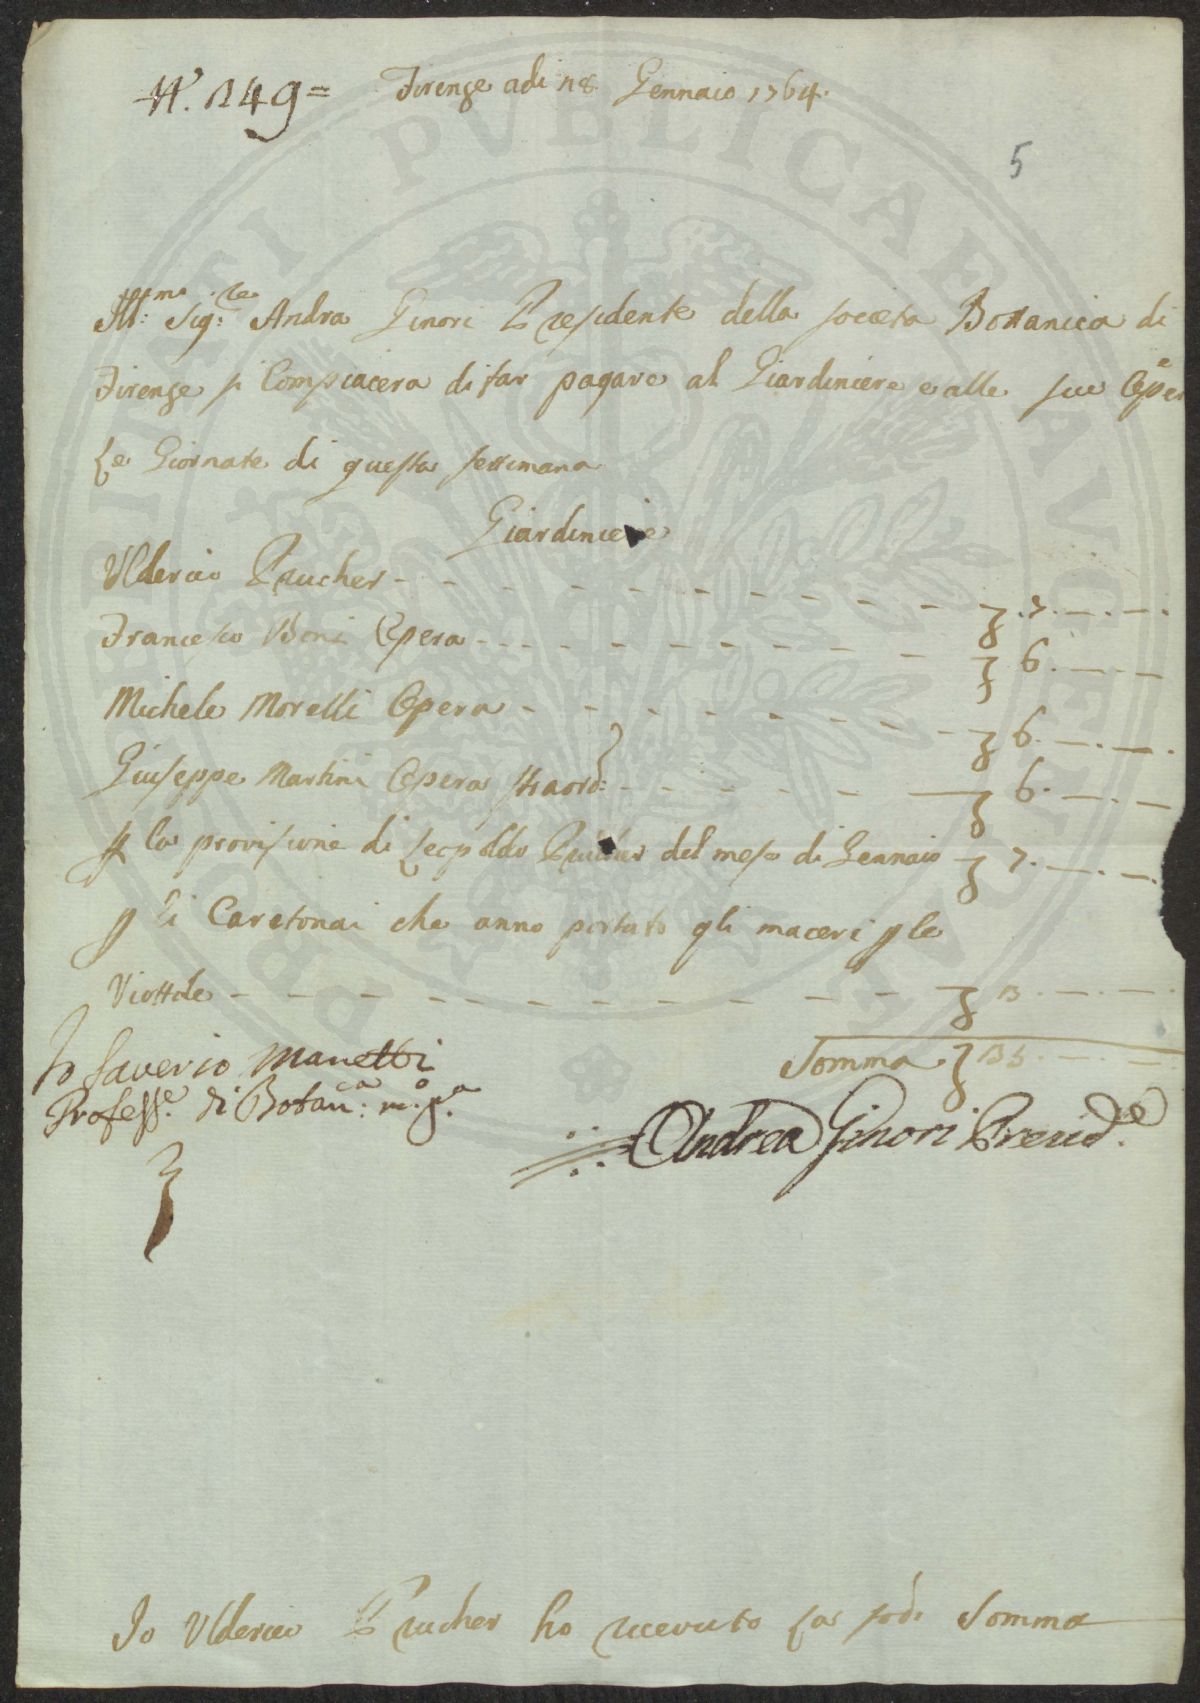 N. 149 = Firenze adi Gennaio 1764.
5
Ill:mo Sig:re Andra Ginori Presidente della societa Bottanica di
Firenze si Compiacera di far pagare al Giardiniere e alle sue Opere
Le Giornate di questa settimana
Giardiniere
Ulderico Prucher - - - - - - - - - £ . 7. —. —.
Francesco Boni Opera - - - - - - - - £ 6. —. —
Michele Morelli Opera - - - - - - - - £ 6. —. —.
Giuseppe Martini Opera straord: - - - - - £ 6. —. —
p la provisione di Leopoldo Prucher del mese di Gennaio - £ 7. —. —.
p li Caretonai che anno portato gli maceri p le
Viottole - - - - - - - - - - - £ —. —.
Somma £
Io Saverio Manetti
Profess:e di Botan:a m:o p:a
Andrea Ginori Presid:e
Io Ulderico Prucher ho riceuuto La sod: Somma
PROSPERITATI PVBLICAE AVGENDAE